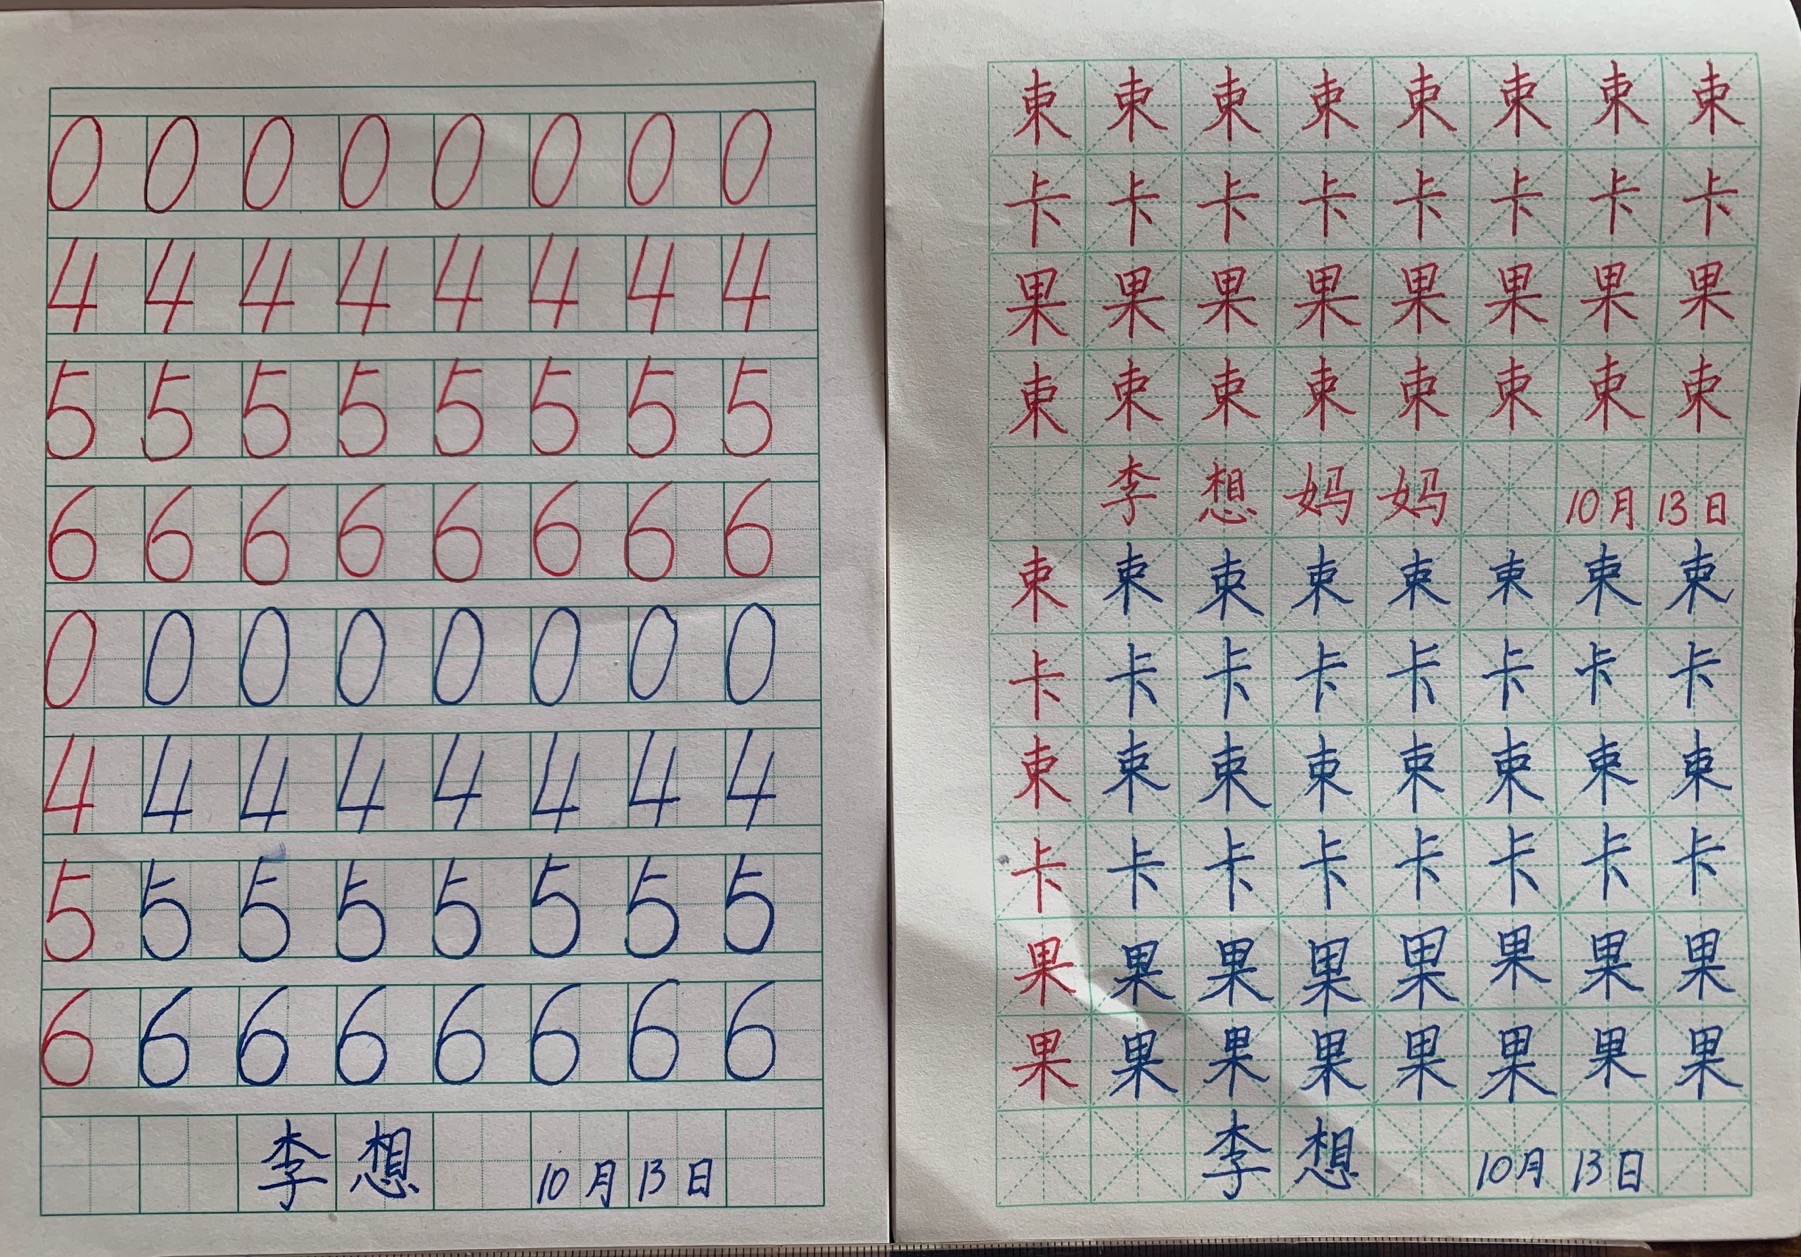 0 0 0 0 0 0 0 0
4 4 4 4 4 4 4 4
5 5 5 5 5 5 5 5
6 6 6 6 6 6 6 6
0 0 0 0 0 0 0 0
4 4 4 4 4 4 4 4
5 5 5 5 5 5 5 5
6 6 6 6 6 6 6 6
李想 10月13日
束束束束束束束束
卡卡卡卡卡卡卡卡
果果果果果果果果
束束束束束束束束
李想妈妈 10月13日
束束束束束束束束
卡卡卡卡卡卡卡卡
束束束束束束束束
卡卡卡卡卡卡卡卡
果果果果果果果果
果果果果果果果果
李想 10月13日